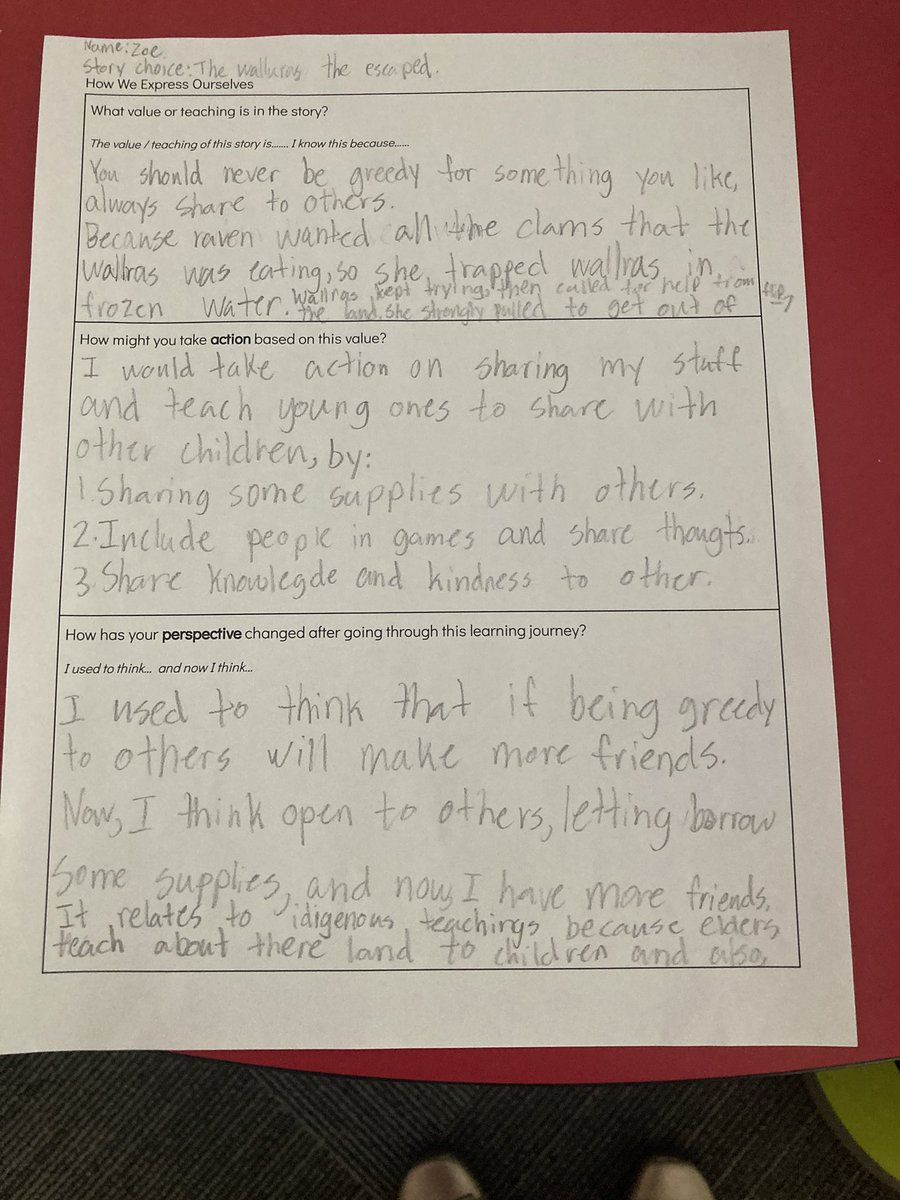 Name: Zoe
Story choice: The walluras the escaped.
How We Express Ourselves
What value or teaching is in the story?
The value / teaching of this story is....... I know this because......
You should never be greedy for something you like,
always share to others.
Because raven wanted all the clams that the
wallras was eating, so she trapped wallras in
frozen water. Wallras kept trying, then called for help from
the land. She strongly pulled to get out of
How might you take action based on this value?
I would take action on sharing my stuff
and teach young ones to share with
other children, by:
1. Sharing some supplies with others.
2. Include people in games and share thougts.
3. Share knowlegde and kindness to other.
How has your perspective changed after going through this learning journey?
I used to think... and now I think...
I used to think that if being greedy
to others will make more friends.
Now, I think open to others, letting borrow
some supplies, and now, I have more friends.
It relates to idigenous teachings because elders
teach about there land to children and also,